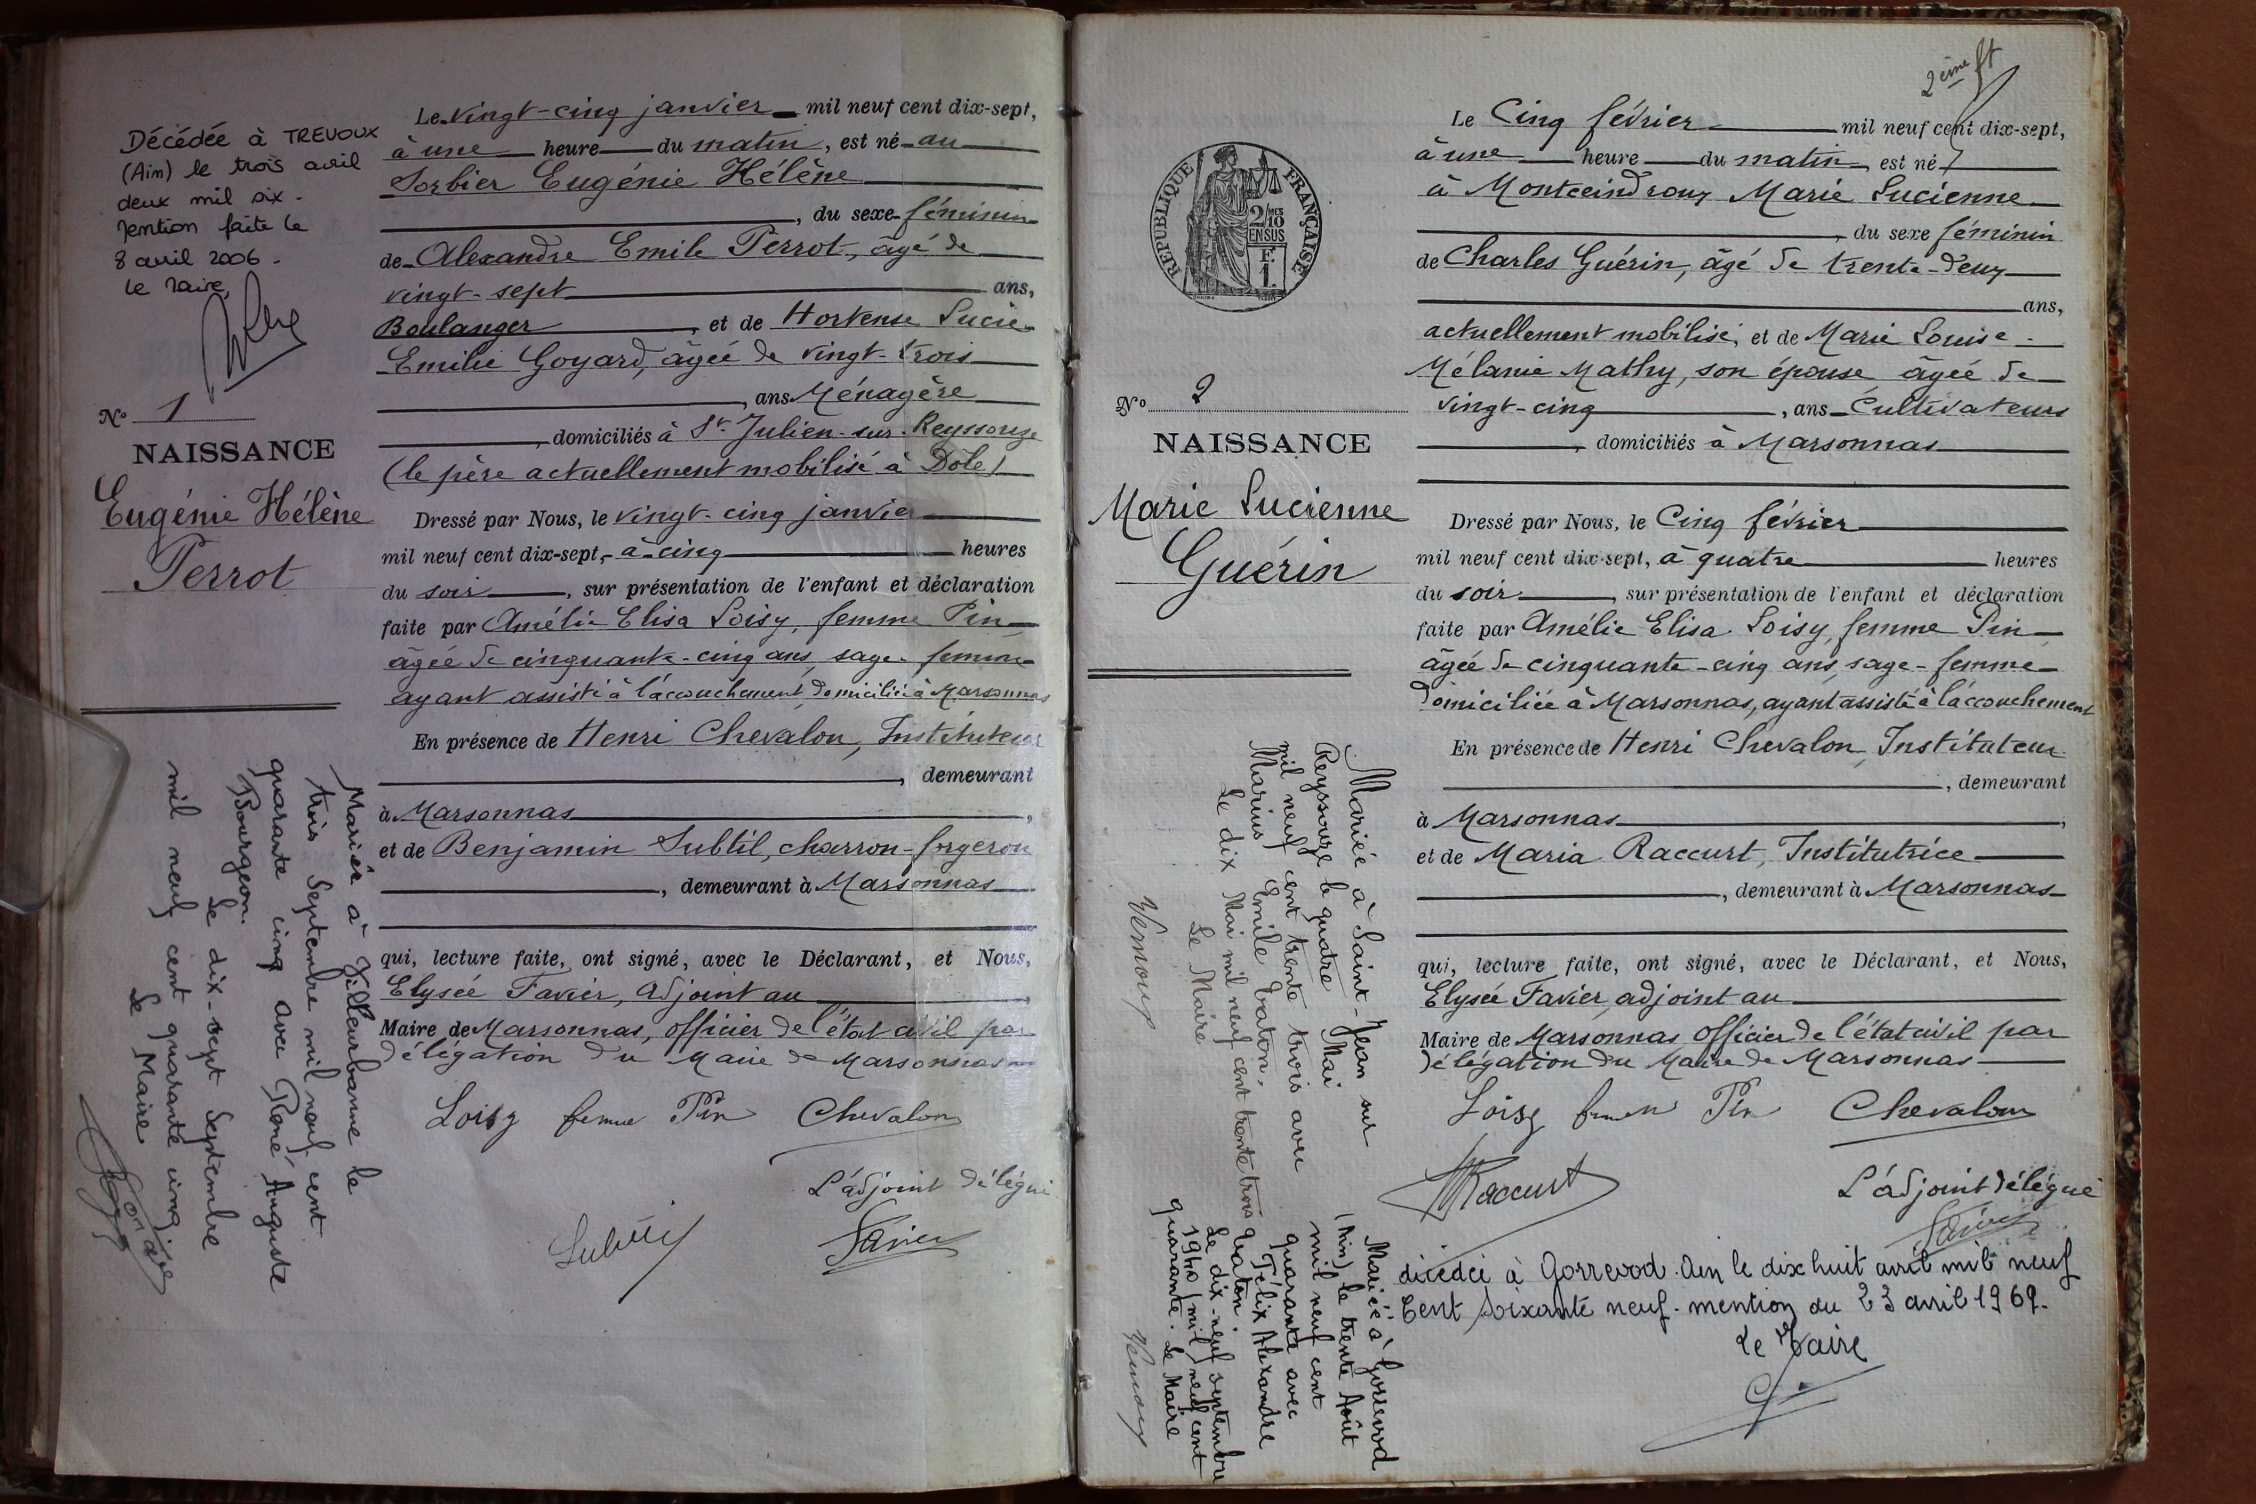 Décédée à TREVOUX
(Ain) le trois avril
deux mil six.
Mention faite le
8 avril 2006.
Le Maire,
N° 1
NAISSANCE
Eugénie Hélène
Perrot
Mariée à Villeurbanne le
trois Septembre mil neuf cent
quarante cinq avec René Auguste
Bourgeon.
Le dix-sept Septembre
mil neuf cent quarante cinq
Le Maire
Le vingt-cinq janvier mil neuf cent dix-sept,
à une heure du matin, est né au
Sorbier Eugénie Hélène
, du sexe féminin
de Alexandre Emile Perrot, âgé de
vingt-sept ans,
Boulanger, et de Hortense Lucie
Emilie Goyard, âgée de vingt-trois
, ans Ménagère
, domiciliés à St Julien-sur-Reyssouze
(le père actuellement mobilisé à Dôle)
Dressé par Nous, le vingt-cinq janvier
mil neuf cent dix-sept, à cinq heures
du soir, sur présentation de l'enfant et déclaration
faite par Amélie Elisa Loisy, femme Pin
âgée de cinquante-cinq ans, sage-femme
ayant assisté à l'accouchement, domiciliée à Marsonnas
En présence de Henri Chevalon, Instituteur
, demeurant
à Marsonnas,
et de Benjamin Subtil, charron-forgeron
, demeurant à Marsonnas
qui, lecture faite, ont signé, avec le Déclarant, et Nous,
Elysée Favier, adjoint au
Maire de Marsonnas, officier de l'état civil par
délégation du Maire de Marsonnas
Loisy femme Pin Chevalon
L'adjoint délégué
Subtil Favier
2ème ft
N° 2
NAISSANCE
Marie Lucienne
Guérin
REPUBLIQUE FRANÇAISE
2/10MES
EN SUS
F.
1.
Mariée à Saint-Jean sur
Reyssouze le quatre Mai
mil neuf cent trente trois avec
Marius Emile Vaton,
Le dix Mai mil neuf cent trente trois
Le Maire
Vernoux
Mariée à Gorrevod
(Ain) le trente Août
mil neuf cent
quarante avec
Félix Alexandre
Vaton.
Le dix-neuf septembre
1940 (mil neuf cent
quarante. Le Maire
Vernoux
Le Cinq février mil neuf cent dix-sept,
à une heure du matin, est né
à Montceindroux Marie Lucienne
, du sexe féminin
de Charles Guérin, âgé de trente-deux
ans,
actuellement mobilisé, et de Marie Louise
Mélanie Mathy, son épouse âgée de
vingt-cinq, ans Cultivateurs
, domiciliés à Marsonnas
Dressé par Nous, le Cinq février
mil neuf cent dix-sept, à quatre heures
du soir, sur présentation de l'enfant et déclaration
faite par Amélie Elisa Loisy, femme Pin
âgée de cinquante-cinq ans, sage-femme
domiciliée à Marsonnas, ayant assisté à l'accouchement
En présence de Henri Chevalon, Instituteur
, demeurant
à Marsonnas,
et de Maria Raccurt, Institutrice
, demeurant à Marsonnas
qui, lecture faite, ont signé, avec le Déclarant, et Nous,
Elysée Favier, adjoint au
Maire de Marsonnas officier de l'état civil par
délégation du Maire de Marsonnas
Loisy femme Pin Chevalon
MRaccurt
L'adjoint délégué
Favier
décédée à Gorrevod. Ain le dix huit avril mil neuf
Cent soixante neuf. mention du 23 avril 1969.
Le Maire